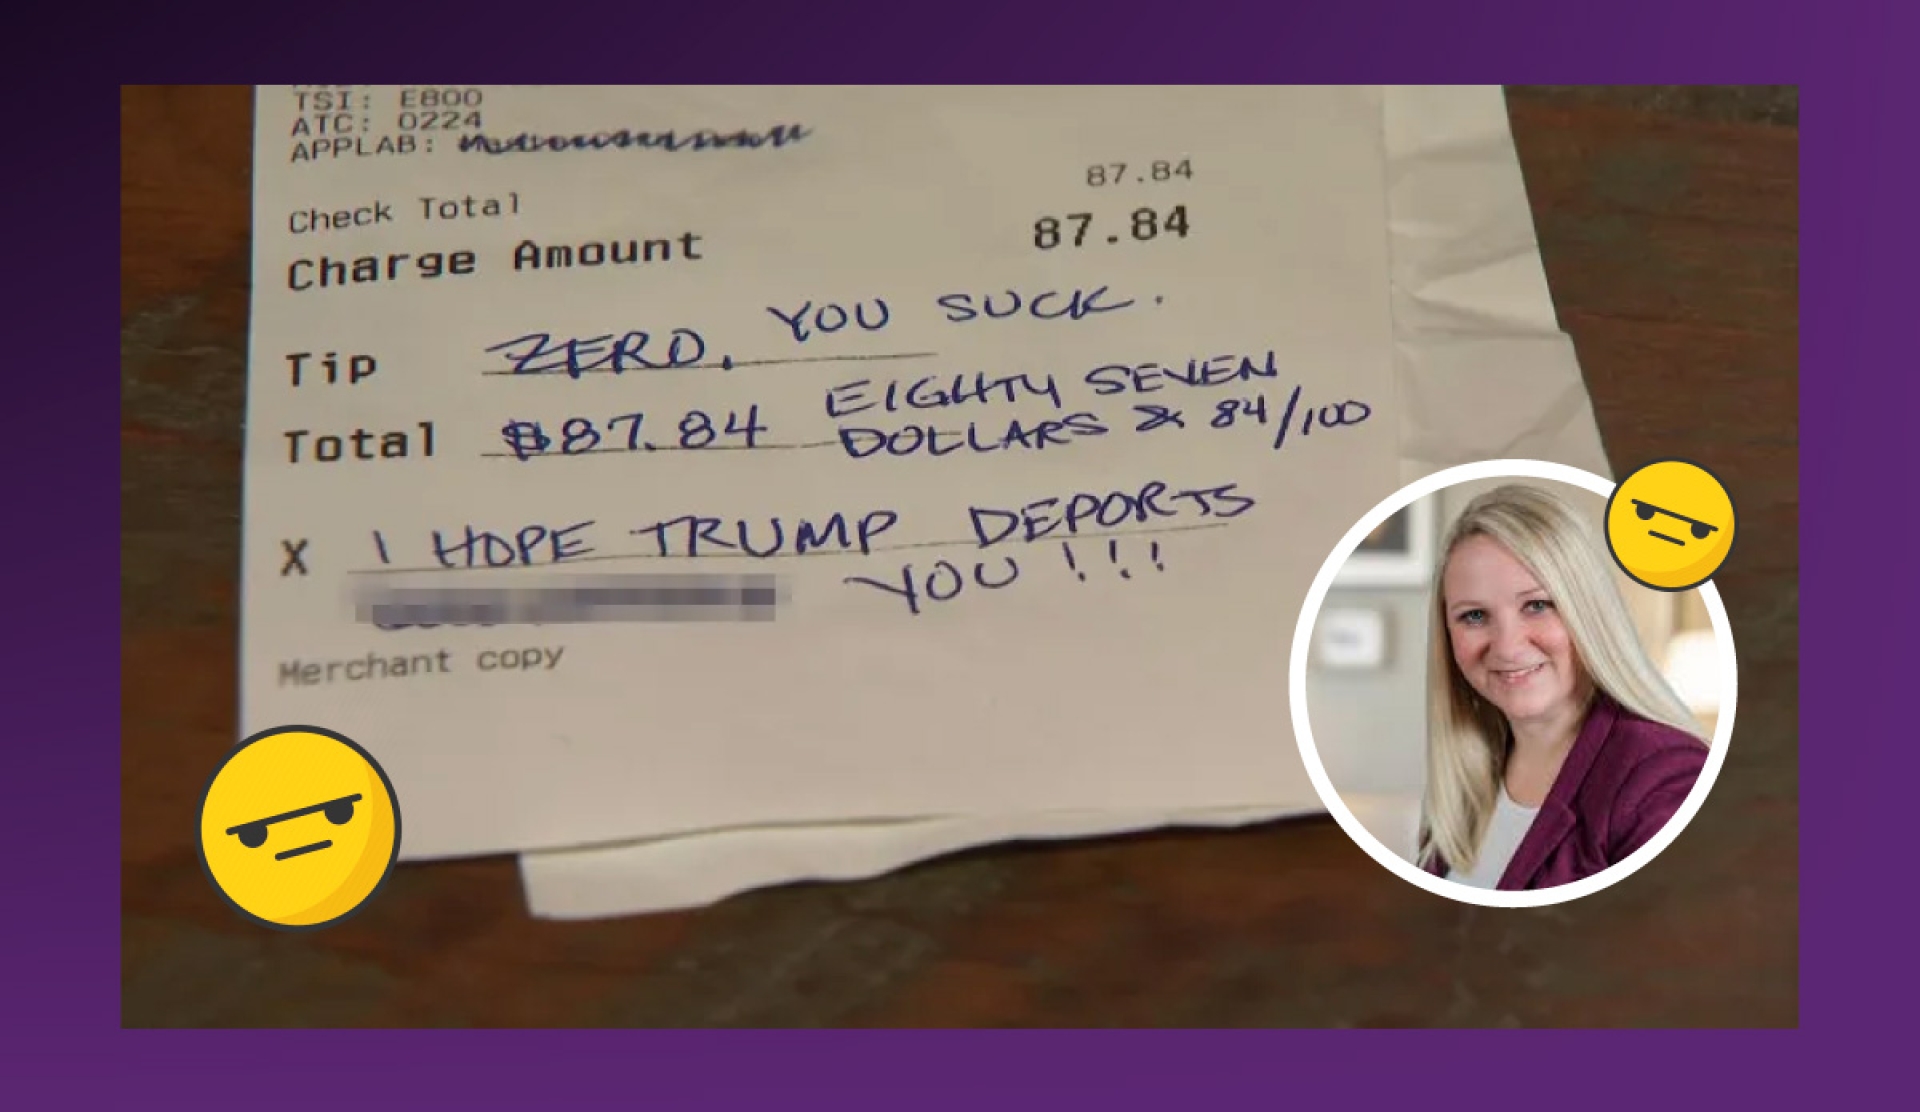 TSI: E800
ATC: 0224
APPLAB:
87.84
Check Total
Charge Amount 87.84
Tip ZERO, YOU SUCK.
Total $87.84 EIGHTY SEVEN
DOLLARS & 84/100
X I HOPE TRUMP DEPORTS
YOU!!!
Merchant copy